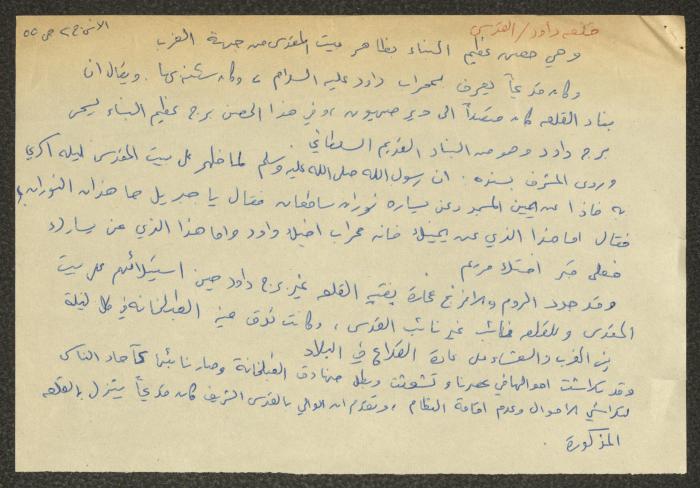 قلعة داود / القدس
الانس ج٢ ص ٥٥
وهي حصن عظيم البناء بظاهر بيت المقدس من جهة الغرب
وكان قديماً يعرف بمحراب داود عليه السلام ، وكان سكنه بها . ويقال ان
بناء القلعة كان متصلاً الى دير صهيون ، وفي هذا الحصن برج عظيم البناء يسمى
برج داود وهو من البناء القديم السليماني
وروى المشرف بسنده . ان رسول الله صلى الله عليه وسلم لما ظهر على بيت المقدس ليلة اسري
به فاذا عن يمين المسجد وعن يساره نوران ساطعان فقال يا جبريل ما هذان النوران ؟
فقال اما هذا الذي عن يمينك فانه محراب اخيك داود واما هذا الذي عن يسارك
فعلى قبر اختك مريم
وقد جدد الروم والافرنج عمارة بقية القلعة غير برج داود حين استيلائهم على بيت
المقدس وللقلعة نائب غير نائب القدس ، وكانت تدق فيه الطبلخانة في كل ليلة
بين المغرب والعشاء على عادة القلاع في البلاد
وقد تلاشت احوالها في عصرنا وتشعثت وبطل منها دق الطبلخانة وصار نائبها كآحاد الناس
لتلاشي الاحوال وعدم اقامة النظام ، وتقدم ان الوالي بالقدس الشريف كان قديماً ينزل بالقلعة
المذكورة .